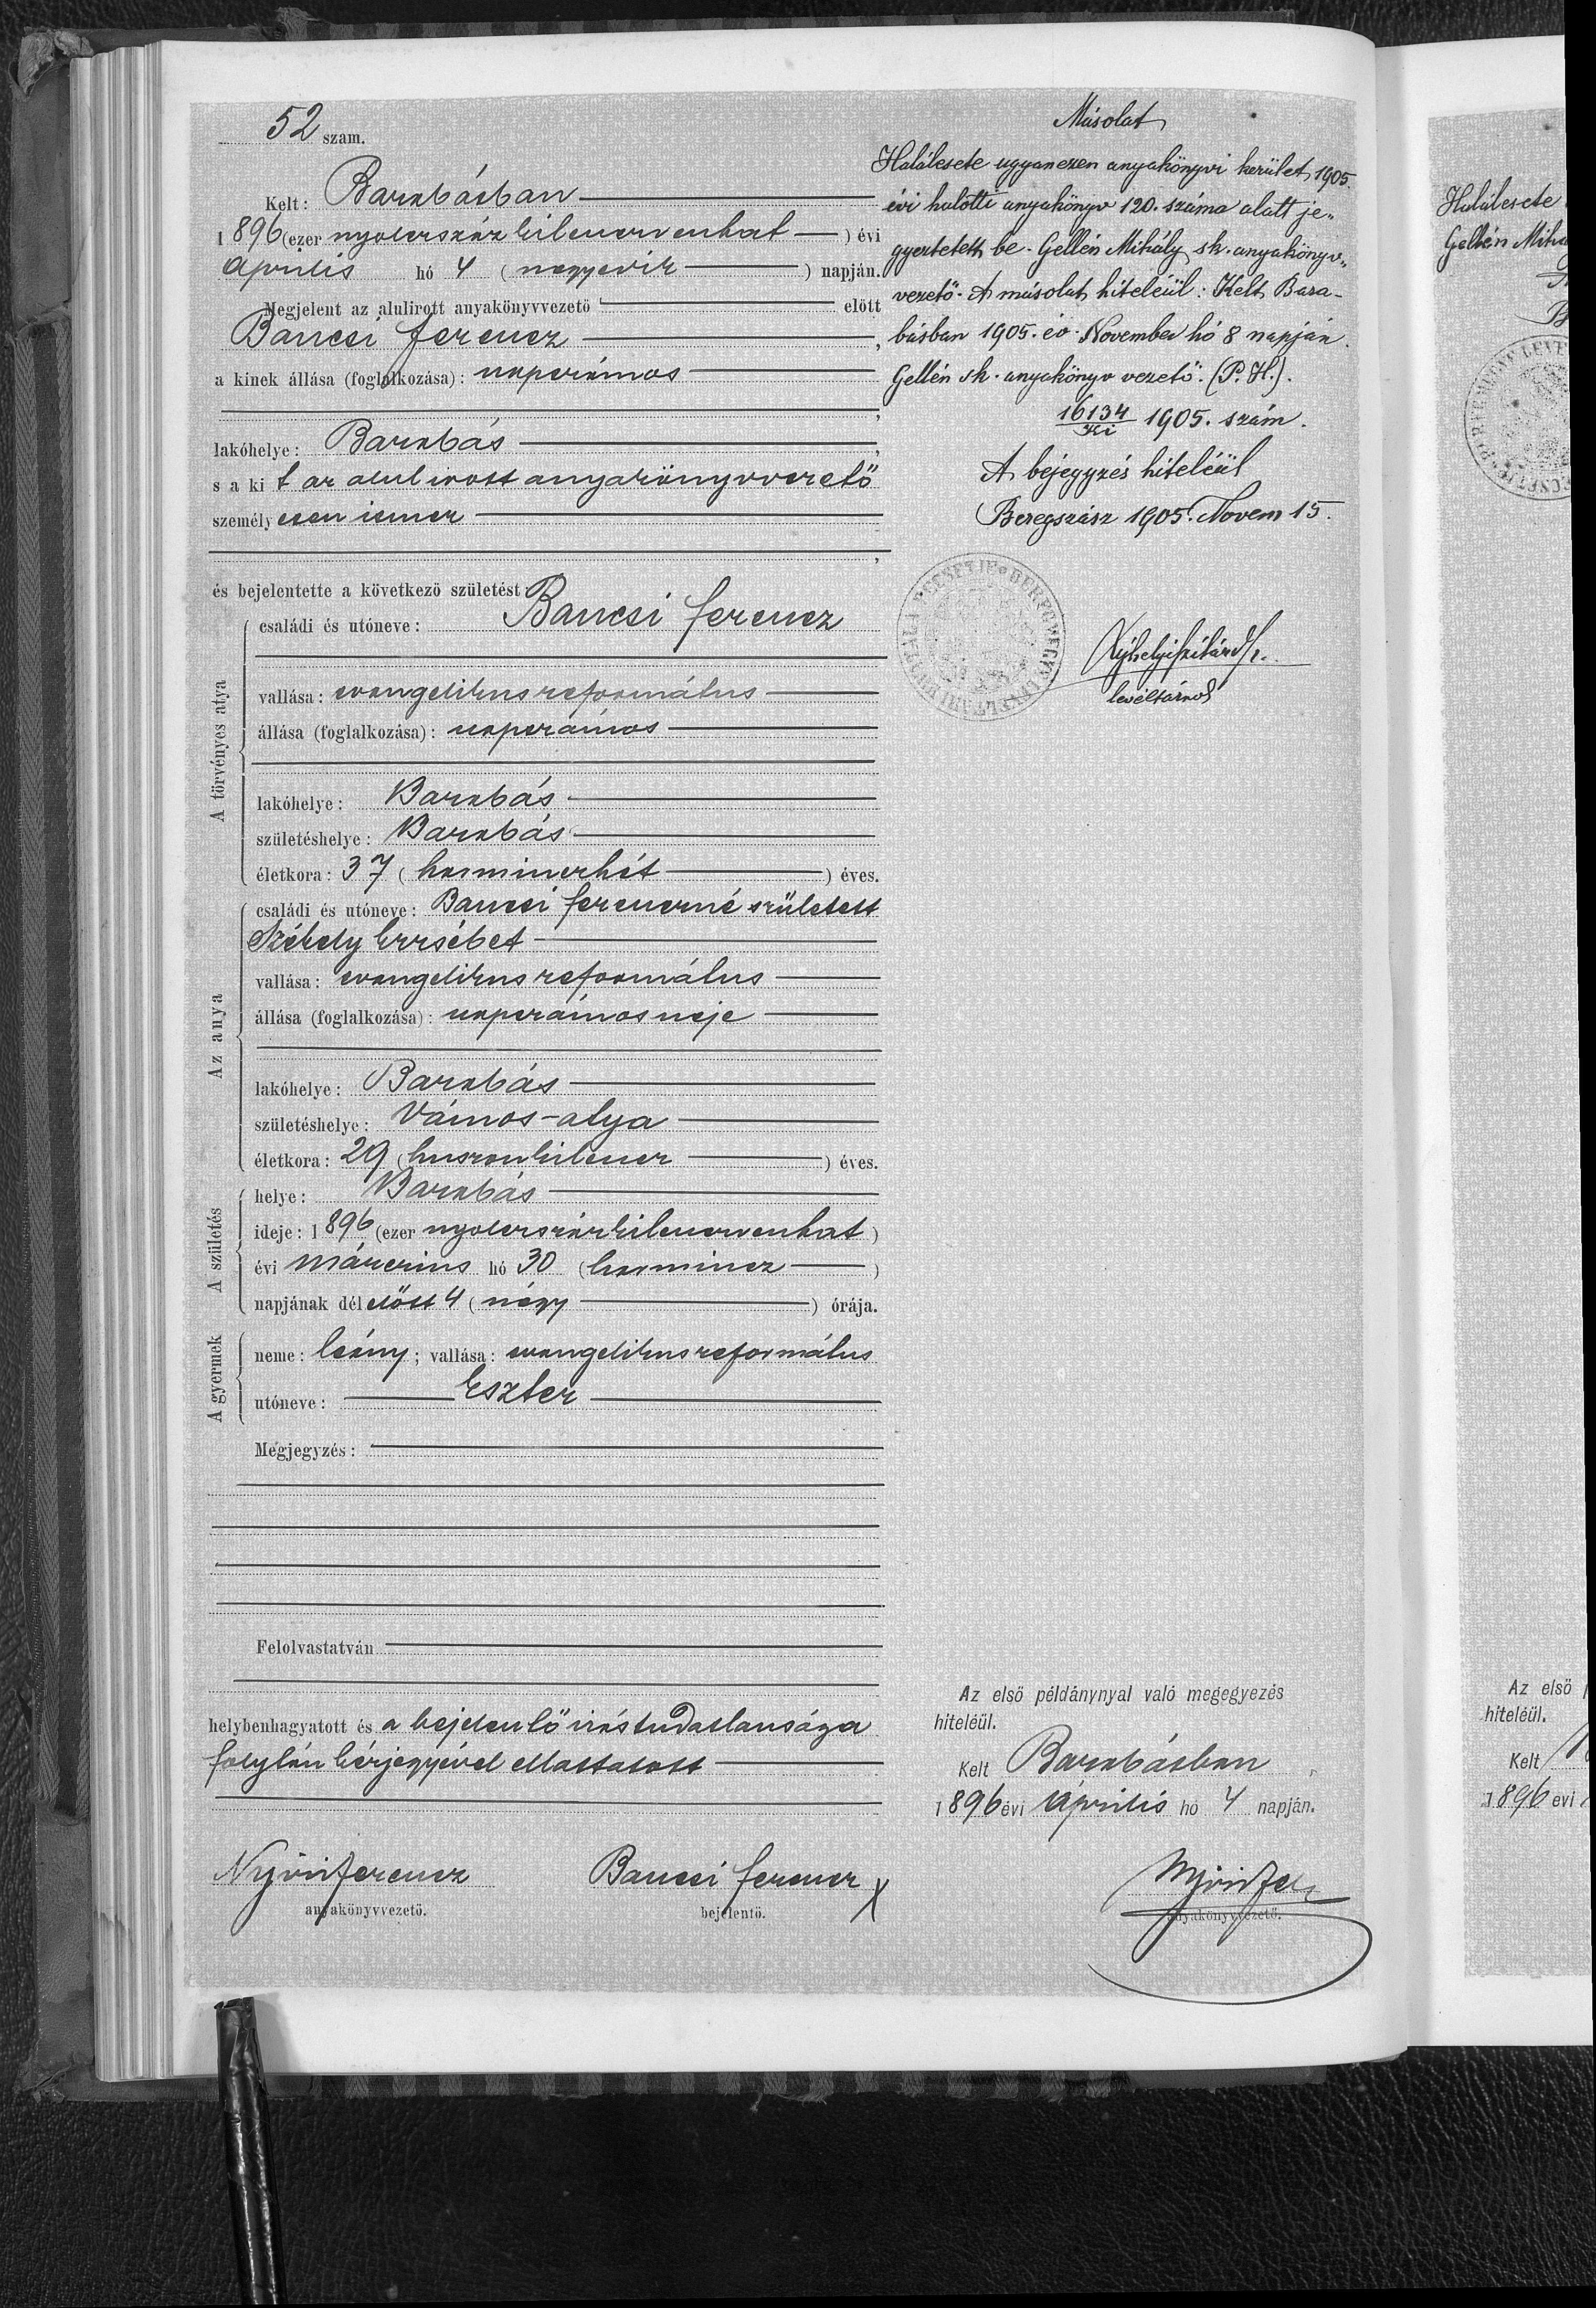 52 szám.
Kelt: Barabásban
1896 (ezer nyolczszáz kilenczvenhat) évi
április hó 4 (negyedik) napján.
Megjelent az alulirott anyakönyvvezető előtt
Bancsi Ferencz,
a kinek állása (foglalkozása): napszámos
lakóhelye: Barabás,
s a kit az alulirott anyakönyvvezető
személyesen ismer
,
és bejelentette a következő születést
A törvényes atya
családi és utóneve: Bancsi Ferencz
vallása: evangelikus református
állása (foglalkozása): napszámos
lakóhelye: Barabás
születéshelye: Barabás
életkora: 37 (harminczhét) éves.
Az anya
családi és utóneve: Bancsi Ferenczné született
Székely Erzsébet
vallása: evangelikus református
állása (foglalkozása): napszámos neje
lakóhelye: Barabás
születéshelye: Vámos-atya
életkora: 29 (huszonkilencz) éves.
A születés
helye: Barabás
ideje: 1896 (ezer nyolczszáz kilenczvenhat)
évi márczius hó 30 (harmincz)
napjának délelőtt 4 (négy) órája.
A gyermek
neme: leány; vallása: evangelikus református
utóneve: Eszter
Megjegyzés:
Felolvastatván
helybenhagyatott és a bejelentő irástudatlansága
folytán kézjegyével ellattatott
Nyiri Ferencz
anyakönyvvezető.
Bancsi Ferencz X
bejelentő.
Másolat
Halálesete ugyanezen anyakönyvi kerület 1905.
évi halotti anyakönyv 120. száma alatt je-
gyeztetett be. Gellén Mihály sk. anyakönyv-
vezető. A másolat hiteléül: Kelt Bara-
básban 1905. év November hó 8 napján.
Gellén sk. anyakönyv vezető. (P. H.).
16134/Ki 1905. szám.
A bejegyzés hiteléül
Beregszász 1905. Novem 15.
levéltárnok
Az első példánynyal való megegyezés
hiteléül.
Kelt Barabásban,
1896 évi április hó 4 napján.
Nyiri Fer
anyakönyvvezető.
Halálesete
Gellén Mihá
Az első
hiteléül.
Kelt
1896 évi